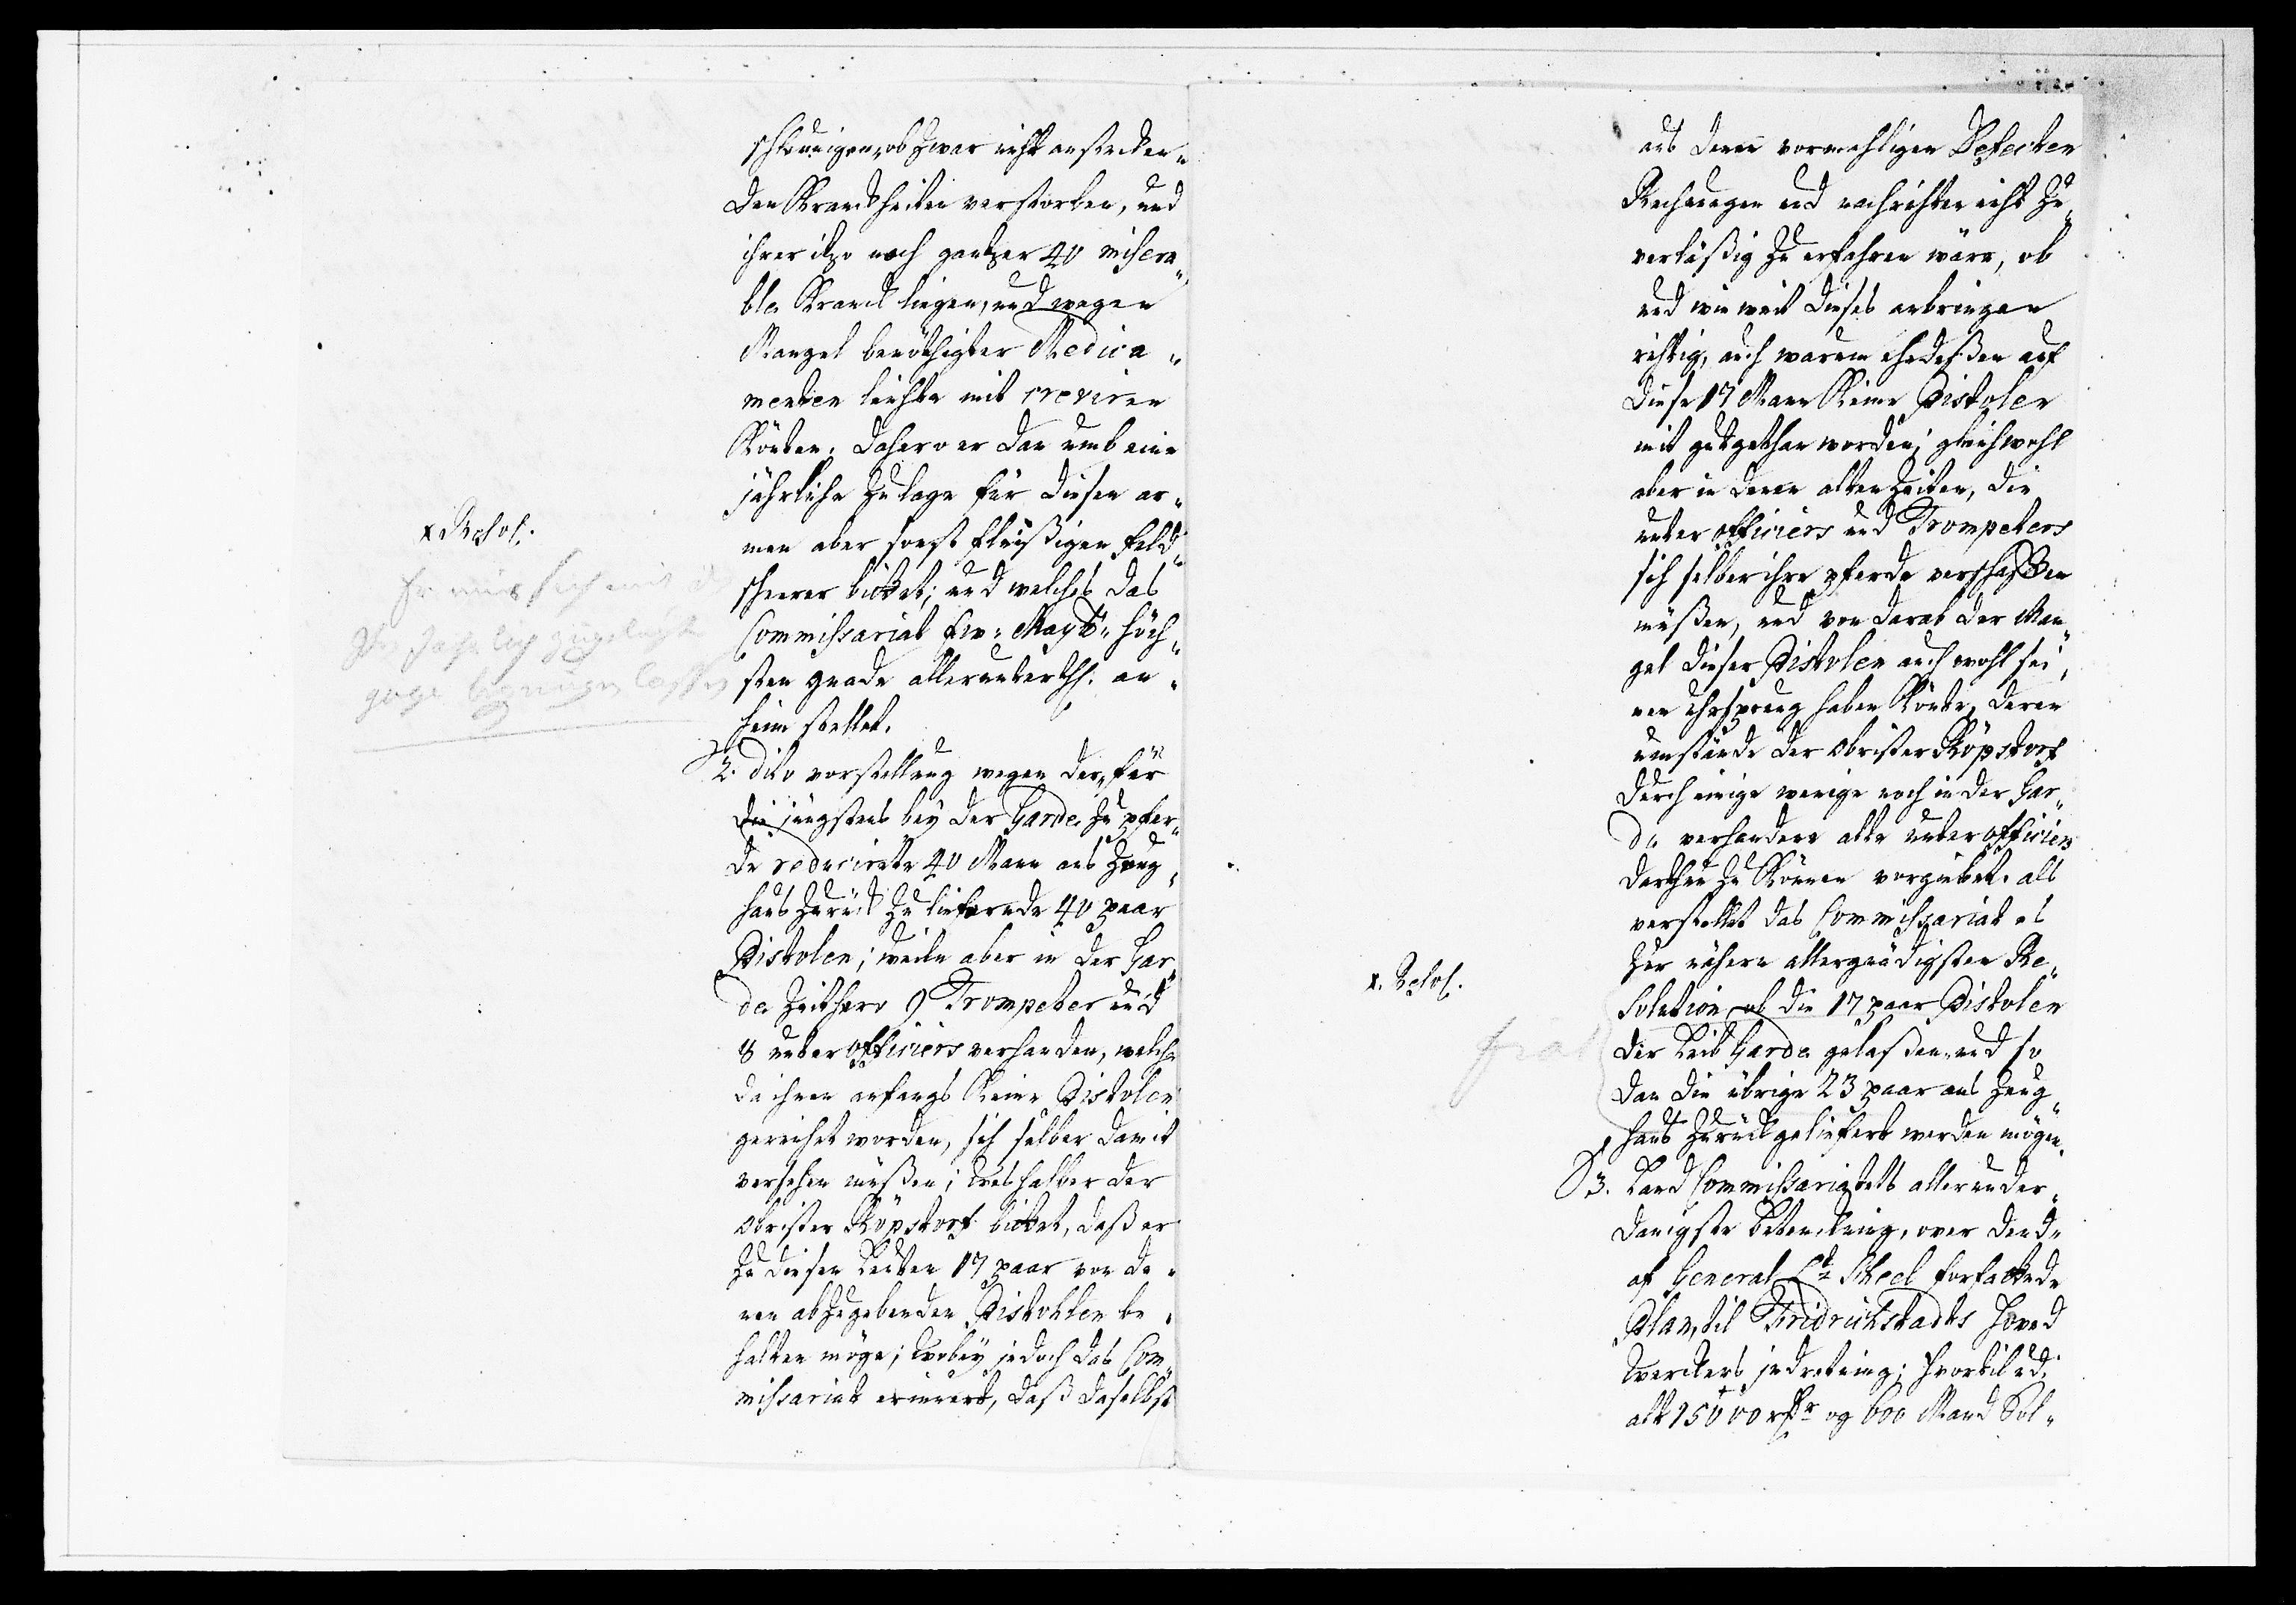 schleunigen, ob zwar nicht anstecken„
den Kranckheiten verstorben, und
ihrer itzo noch gantzer 40 misera„
ble Kranck liegen, und wegen
Mangel benöthigter Medica„
menten leichte mit creviren
Könten. Dahero er dan umb eine
jährliche Zulage für diesen ar„
men aber sonst fleißigen Feld„
scheerer bittet; und welches das
Commissariat Ew: Maytt: höch„
sten gnade allerunterth. an„
heim stellet.
x Resol.
Er mus sich mit
Ihr jahrlich zugelegte
gage begnügen lassen
2. dito vorstellung wegen der, für
die jüngstens bey der Garde zu pfer„
de reducirte 40 Mann ans Zeug„
haus zurück zu liefernde 40 paar
Pistolen; weiln aber in der Gar„
de Zeithero 9 Trompeter und
8 unter officiers verhanden, welche
da ihnen anfangs Keine Pistolen
gereichet worden, sich selber damit
versehen müßen; deshalber der
Obrister Köpstorf bittet, daß er
zu diesen Leuten 17 paar von de„
nen abzugebenden Pistohlen be„
halten möge; Wobey jedoch das Com„
missariat erinnert, daß daselbst
aus denen vormahligen Defecten
Rechnungen und nachrichten nicht zu„
verläßig zu erfahren wäre, ob
und wie weit dieses anbringen
richtig, auch warum ehedeßen auf
diese 17 Mann Keine Pistolen
mit gutgethan worden; gleichwohl
aber in denen alten Zeiten, die
unter officiers und Trompeters
sich selber ihre pferde verschaffen
müßen, und von darab der Man„
gel dieser Pistolen auch wohl sei„
nen Uhrsprung haben Könte, deren
umstände der Obrister Köpstorf
durch einige wenige noch in der Gar„
de verhandene alte unter officiers
darthun zu Können vorgiebet. als
verstellet das Commissariat es
zur nähern allergnädigsten Re„
solution, ob die 17 paar Pistolen
der Leib Garde gelaßen, und so
dan die übrige 23 paar ans Zeug„
haus zurück geliefert werden mögen.
x. Resol.
fiat
3. Land Commissariatets allerunder„
danigste betenckning, over dend„
af General Lt: Scheel forfattede
Plan, til Fridrichstadts Hoved
Werckers indretning; hvortil ud.
alt 15000 rdr og 600 Mand Sol„